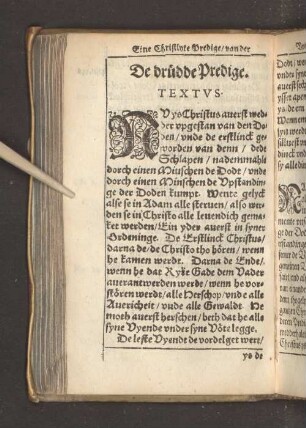 Eine Christlyke Predige / van der
De drüdde Predige.
TEXTVS.
NV ys Christus auerst wed-
der vpgestan van den Do-
den / vnde de erstlinck ge-
worden van denn / dede
Schlapen / nademmahl
dorch einen Minschen de Dodt / vnde
dorch einen Minschen de Vpstandin-
ge der Doden kumpt. Wente gelyck
alse se in Adam alle steruen / also wer-
den se in Christo alle leuendich gema-
ket werden / Ein yder auerst in syner
Ordeninge. De Erstlinck Christus /
darna de / de Christo tho hören / wenn
he kamen werdt. Darna de Ende /
wenn he dat Ryke Gade dem Vader
auerantwerden werde / wenn he vor-
stören werdt / alle Herschop / vnde alle
Auericheit / vnde alle Gewaldt. He
moth auerst herschen / beth dat he alle
syne Vyende vnder syne Vöte legge.
De leste Vyendt de vordelget wert /
ys de